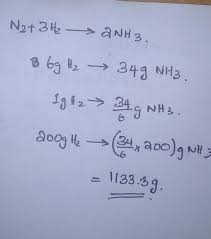 N₂+3H₂ ⟶ 2NH₃.
6g H₂ ⟶ 34g NH₃.
1g H₂ → 34/6 g NH₃.
200g H₂ → (34/6 × 200) g NH₃
= 1133.3g.